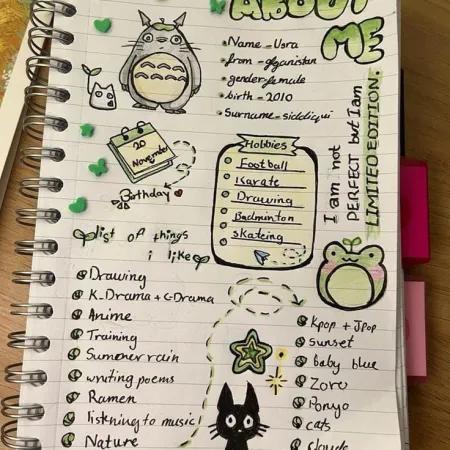 ABOUT
ME
Name - Usra
from - afganistan
gender - female
birth - 2010
Surname - siddiqui
I am not
PERFECT but I am
LIMITED EDITION.
20
November
Birthday
Hobbies
Football
Karate
Drawing
Badminton
skateing
list of things
i like
Drawing
K-Drama + C-Drama
Anime
Training
Summer rain
writing poems
Ramen
listning to music
Nature
Kpop + Jpop
sunset
baby blue
Zoro
Ponyo
cats
clouds